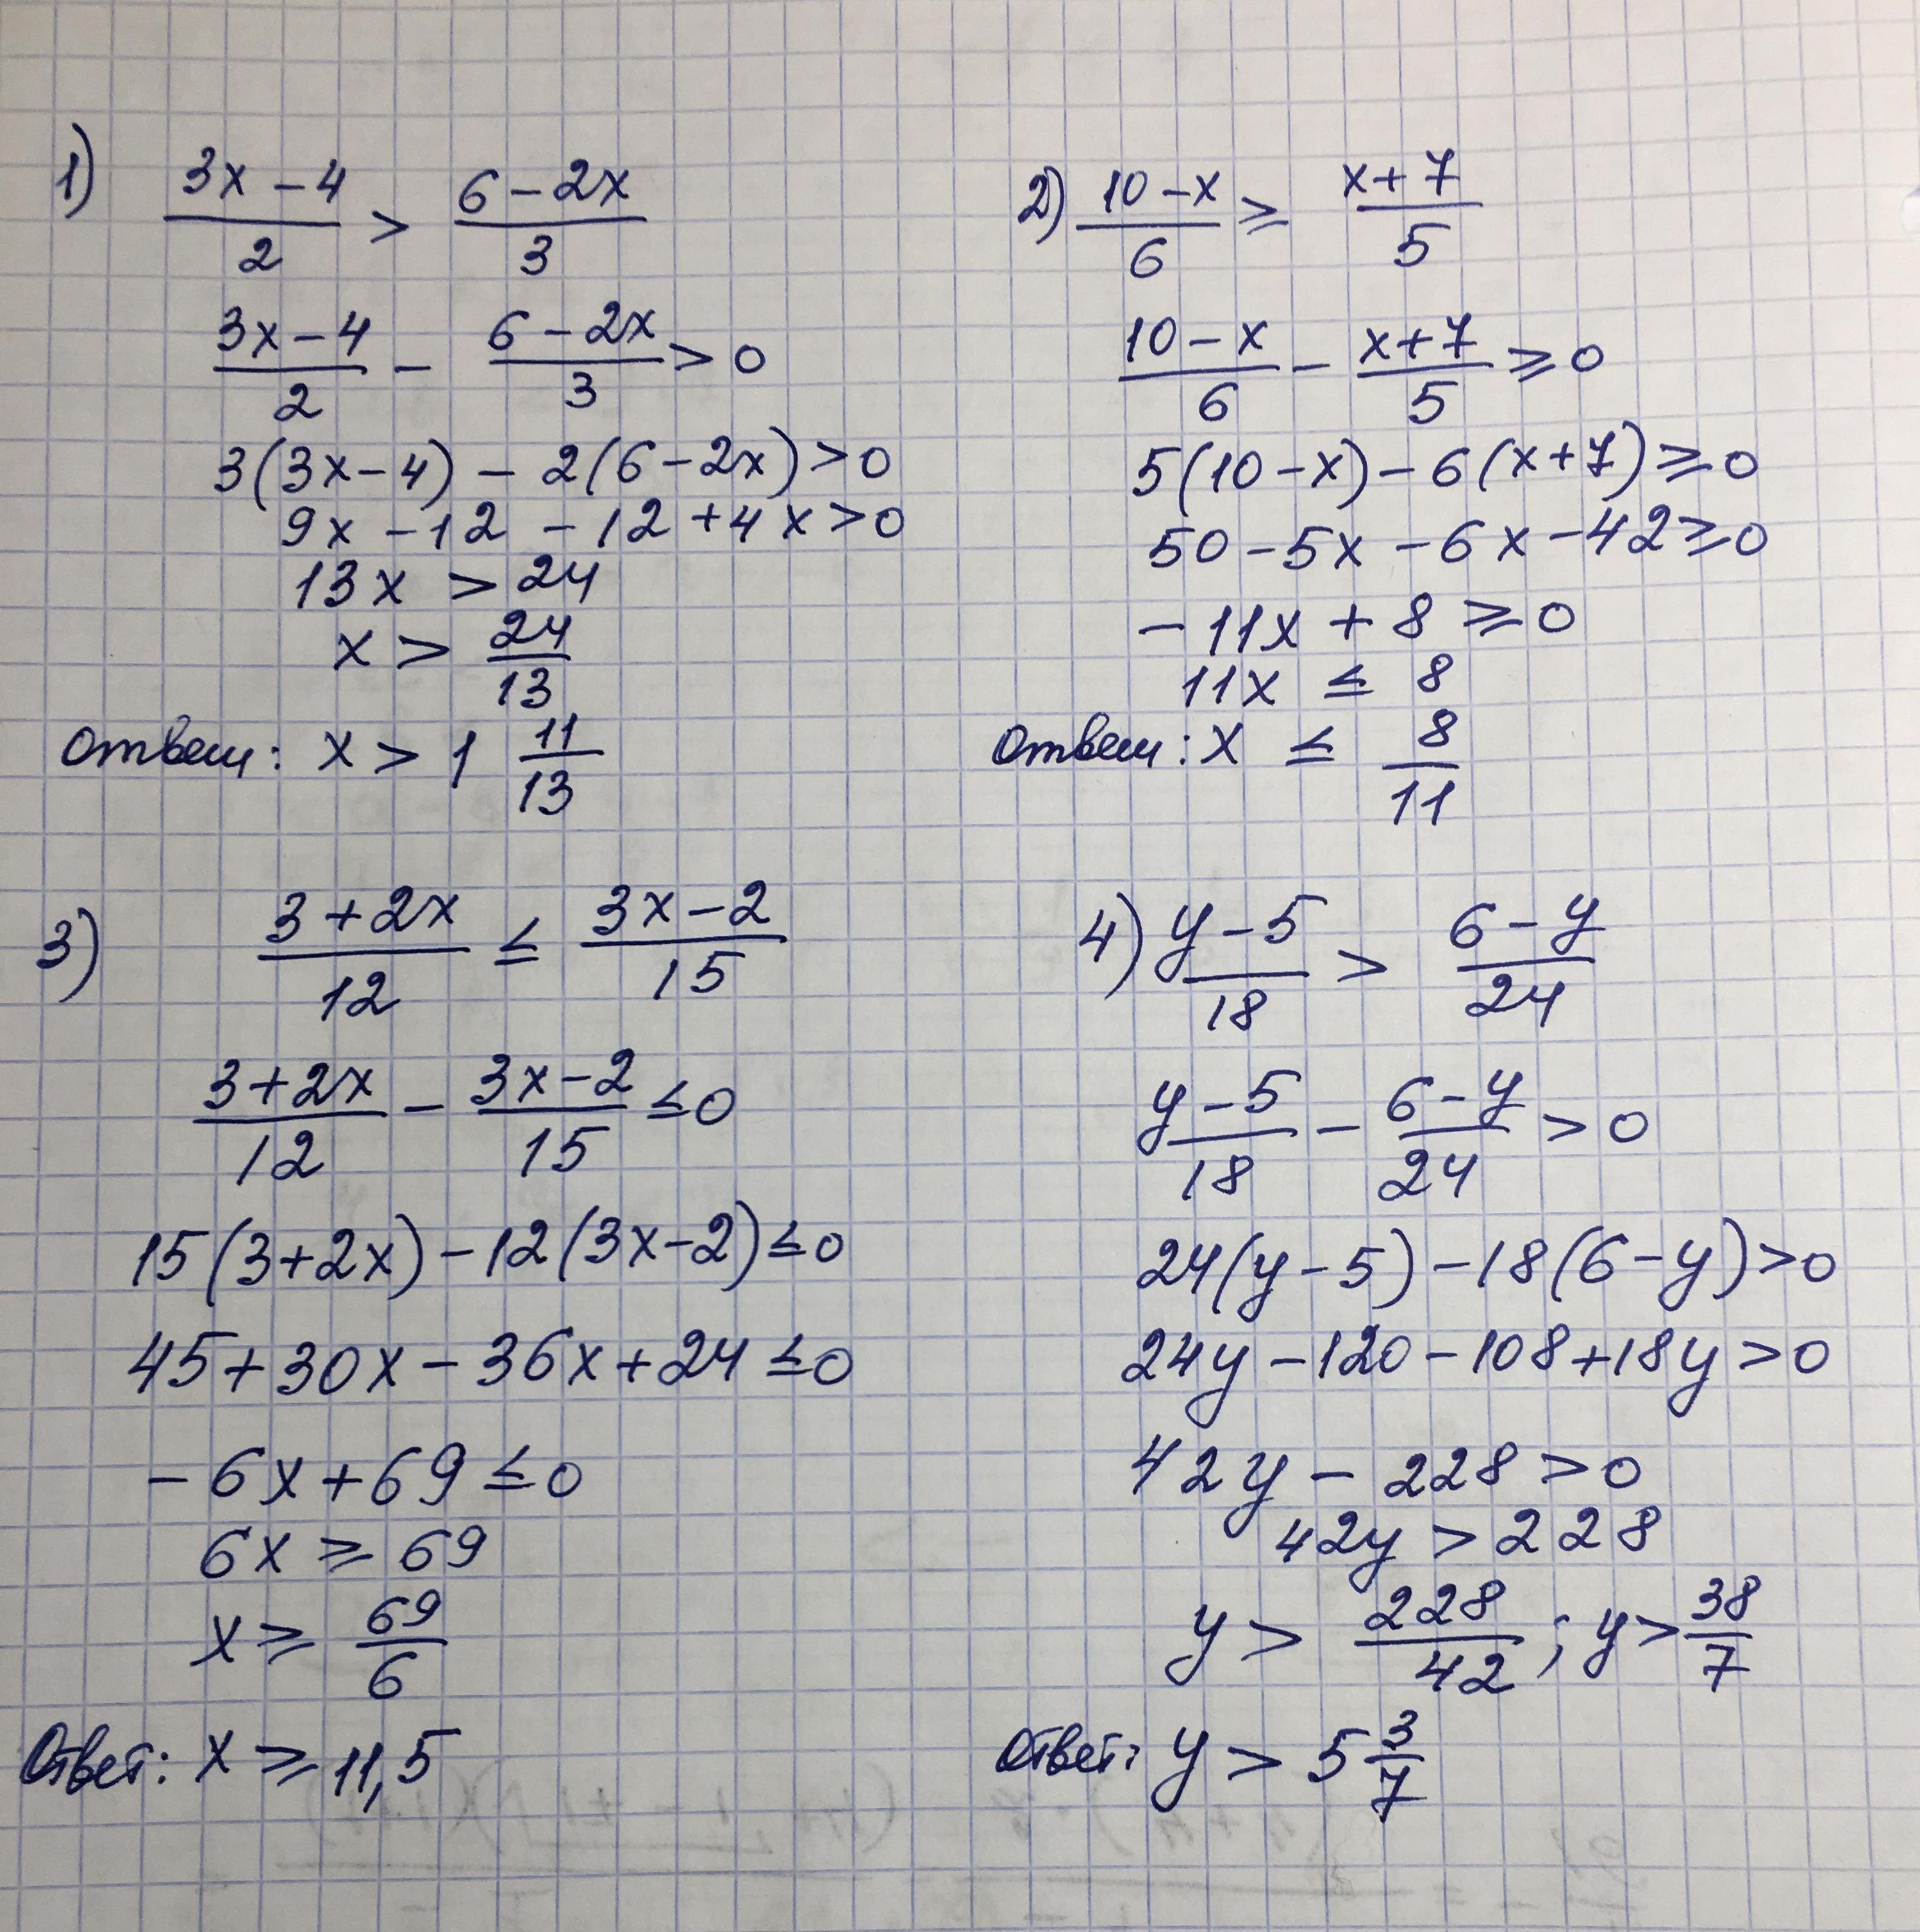 1) (3x-4)/2 > (6-2x)/3
(3x-4)/2 - (6-2x)/3 > 0
3(3x-4) - 2(6-2x) > 0
9x - 12 - 12 + 4x > 0
13x > 24
x > 24/13
Ответ: x > 1 11/13
2) (10-x)/6 ≥ (x+7)/5
(10-x)/6 - (x+7)/5 ≥ 0
5(10-x) - 6(x+7) ≥ 0
50 - 5x - 6x - 42 ≥ 0
-11x + 8 ≥ 0
11x ≤ 8
Ответ: x ≤ 8/11
3) (3+2x)/12 ≤ (3x-2)/15
(3+2x)/12 - (3x-2)/15 ≤ 0
15(3+2x) - 12(3x-2) ≤ 0
45 + 30x - 36x + 24 ≤ 0
-6x + 69 ≤ 0
6x ≥ 69
x ≥ 69/6
Ответ: x ≥ 11,5
4) (y-5)/18 > (6-y)/24
(y-5)/18 - (6-y)/24 > 0
24(y-5) - 18(6-y) > 0
24y - 120 - 108 + 18y > 0
42y - 228 > 0
42y > 228
y > 228/42 ; y > 38/7
Ответ: y > 5 3/7